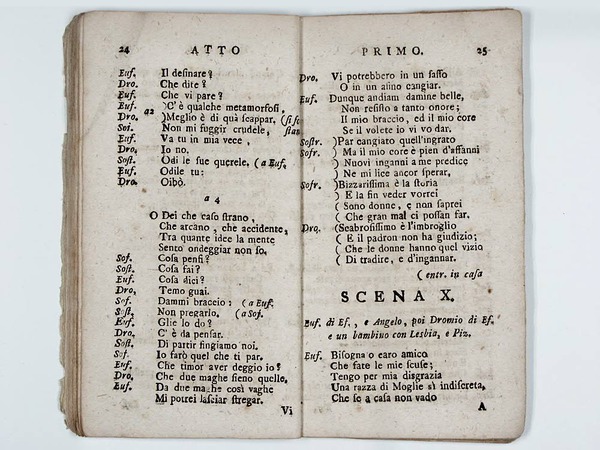 24 ATTO
Euf. Il desinare?
Dro. Che dite?
Euf. Che vi pare?
Euf. a2 )C'è qualche metamorfosi,
Dro. )Meglio è di quà scappar, (si sc
Soi. Non mi fuggir crudele, stan
Euf. Va tu in mia vece,
Dro. Io no.
Sost. Odi le sue querele. (a Euf.
Euf. Odile tu:
Dro. Oibò.
a 4
O Dei che caso strano,
Che arcano, che accidente,
Tra quante idee la mente
Sento ondeggiar non so.
Sof. Cosa pensi?
Sost. Cosa fai?
Euf. Cosa dici?
Dro, Temo guai.
Sof. Dammi braccio: (a Euf.
Sost, Non pregarlo. (a Sof.
Euf. Glie lo do?
Dro. C'è da pensar.
Sost. Di partir fingiamo noi.
Sof. Io farò quel che ti par.
Euf. Che timor aver deggio io?
Dro. Che due maghe sieno quelle.
Euf. Da due maghe così vaghe
Mi potrei lasciar stregar.
Vi
PRIMO. 25
Dro. Vi potrebbero in un sasso
O in un asino cangiar.
Euf. Dunque andiam damine belle,
Non resisto a tanto onore;
Il mio braccio, ed il mio core
Se il volete io vi vo dar.
Sostr. )Par cangiato quell'ingrato
Sofr. ) Ma il mio core è pien d'affanni
) Nuovi inganni a me predice
) Ne mi lice ancor sperar.
Sofr. )Bizzarissima è la storia
) E la fin veder vorrei
( Sono donne, e non saprei
( Che gran mal ci possan far.
Dro. (Seabrosissimo è l'imbroglio
( E il padron non ha giudizio;
( Che le donne hanno quel vizio
( Di tradire, e d'ingannar.
(entr. in casa
SCENA X.
Euf. di Ef., e Angelo, poi Dromio di Ef.
e un bambino con Lesbia, e Piz.
Euf. Bisogna o caro amico
Che fate le mie scuse;
Tengo per mia disgrazia
Una razza di Moglie sì indiscreta,
Che se a casa non vado
A